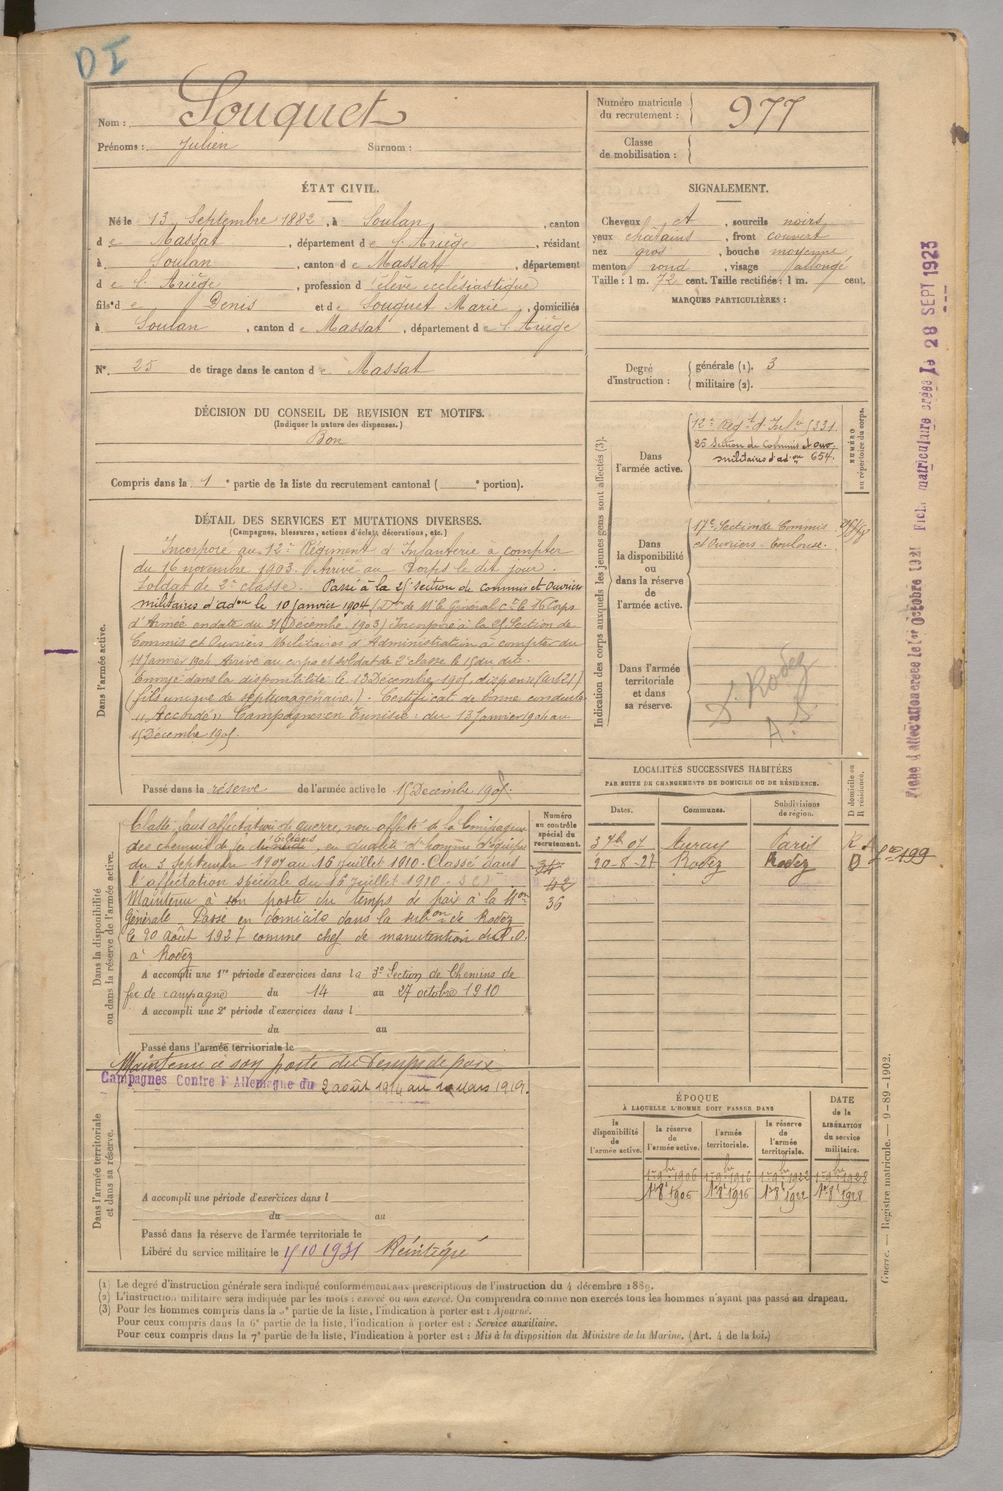 DI
Nom : Souquet
Prénoms : Julien Surnom :
Numéro matricule du recrutement : 977
Classe de mobilisation :
ÉTAT CIVIL.
Né le 13 Septembre 1882, à Soulan, canton
de Massat, département de l'Ariège, résidant
à Soulan, canton de Massat, département
de l'Ariège, profession d'élève ecclésiastique
fils de Denis et de Souquet Marie, domiciliés
à Soulan, canton de Massat, département de l'Ariège
N° 25 de tirage dans le canton de Massat
SIGNALEMENT.
Cheveux et, sourcils noirs
yeux châtains, front couvert
nez gros, bouche moyenne
menton rond, visage allongé
Taille : 1 m. 72 cent. Taille rectifiée : 1 m. cent.
MARQUES PARTICULIÈRES :
Degré d'instruction : générale (1). 3
militaire (2).
DÉCISION DU CONSEIL DE REVISION ET MOTIFS.
(Indiquer la nature des dispenses.)
Bon
Compris dans la 1e partie de la liste du recrutement cantonal ( e portion).
DÉTAIL DES SERVICES ET MUTATIONS DIVERSES.
(Campagnes, blessures, actions d'éclat, décorations, etc.)
Dans l'armée active.
Incorporé au 12e Régiment d'Infanterie à compter
du 16 novembre 1903. Arrivé au Corps le dit jour.
Soldat de 2e classe. Passé à la 25e Section de Commis et Ouvriers
militaires d'adon le 10 Janvier 1904 (Don de Mr le Général Ct le 16 Corps
d'Armée en date du 31 Décembre 1903) Incorporé à la 25 Section de
Commis et Ouvriers Militaires d'Administration à compter du
11 Janvier 1904. Arrivé au corps et soldat de 2e classe le 15 du dit.
Envoyé dans la disponibilité le 15 Décembre 1905, dispensé (art 21)
(fils unique de septuagénaire). Certificat de bonne conduite
"Accordé" Campagnes en Tunisie : du 13 Janvier 1904 au
15 Décembre 1905.
Passé dans la réserve de l'armée active le 15 Décembre 1905.
Indication des corps auxquels les jeunes gens sont affectés (3).
Dans l'armée active.
12e Régt d'Infie 5331
25 Section de Commis et ouv.
militaires d'adon 654.
NUMÉRO au répertoire du corps.
Dans la disponibilité ou dans la réserve de l'armée active.
17e Section de Commis
et Ouvriers - Toulouse.
Dans l'armée territoriale et dans sa réserve.
S. Rodez
A. S.
Dans la disponibilité ou dans la réserve de l'armée active.
Classé sans affectation de guerre, non affecté de la Compagnie
des chemins de fer d'Orléans, en qualité d'homme d'équipe
du 3 septembre 1907 au 16 juillet 1910. Classé dans
l'affectation spéciale du 16 juillet 1910
Maintenu à son poste du temps de paix à la Mon
Générale. Passe en domicile dans la subon de Rodez
le 20 Août 1927 comme chef de manutention du P.O.
à Rodez
Numéro au contrôle spécial du recrutement.
34
42
36
A accompli une 1re période d'exercices dans la 3e Section de Chemins de
fer de campagne du 14 au 27 octobre 1910
A accompli une 2e période d'exercices dans l
du au
Passé dans l'armée territoriale le
Maintenu à son poste du temps de paix
Campagnes Contre l'Allemagne du 2 août 1914 au 10 Mars 1919.
Dans l'armée territoriale et dans sa réserve.
A accompli une période d'exercices dans l
du au
Passé dans la réserve de l'armée territoriale le
Libéré du service militaire le 15/10 1931 Réintégré
LOCALITÉS SUCCESSIVES HABITÉES
PAR SUITE DE CHANGEMENTS DE DOMICILE OU DE RÉSIDENCE.
Dates. Communes. Subdivisions de région. D domicile ou R résidence.
3 7bre 07 Paris R
20-8-27 Rodez Rodez D
ÉPOQUE
À LAQUELLE L'HOMME DOIT PASSER DANS
la disponibilité de l'armée active. la réserve de l'armée active. l'armée territoriale. la réserve de l'armée territoriale. DATE de la LIBÉRATION du service militaire.
1er 9bre 1906 1er 9bre 1916 1er 9bre 1922 1er 9bre 1928
1er 8bre 1906 1er 8bre 1916 1er 8bre 1922 1er 8bre 1928
(1) Le degré d'instruction générale sera indiqué conformément aux prescriptions de l'instruction du 4 décembre 1889.
(2) L'instruction militaire sera indiquée par les mots : exercé ou non exercé. On comprendra comme non exercés tous les hommes n'ayant pas passé au drapeau.
(3) Pour les hommes compris dans la 5e partie de la liste, l'indication à porter est : Ajourné.
Pour ceux compris dans la 6e partie de la liste, l'indication à porter est : Service auxiliaire.
Pour ceux compris dans la 7e partie de la liste, l'indication à porter est : Mis à la disposition du Ministre de la Marine. (Art. 4 de la loi.)
Guerre. — Registre matricule. — 9-89-1902.
Fiche d'affectation créée le 1er Octobre 1921 Fich. matriculaire créée le 28 SEPT 1923